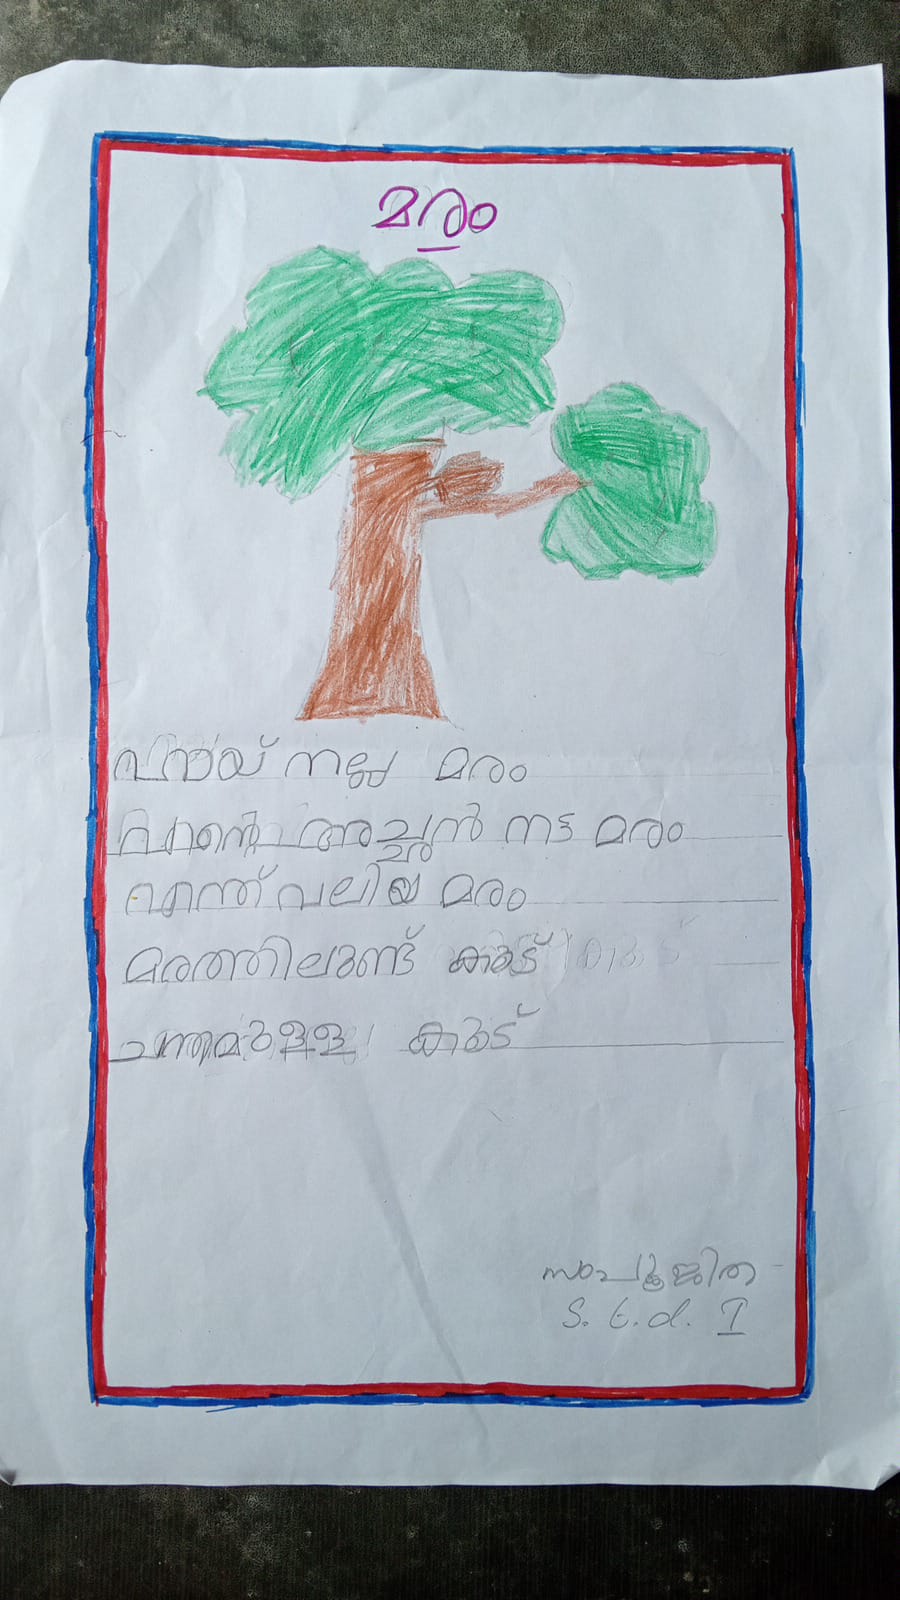 മരം
ഹായ് നല്ല മരം
എന്റെ അച്ഛൻ നട്ട മരം
എന്ത് വലിയ മരം
മരത്തിലുണ്ട് കൂട്
ചന്തമുള്ള കൂട്
സംപൂജിത
S. t. d. I